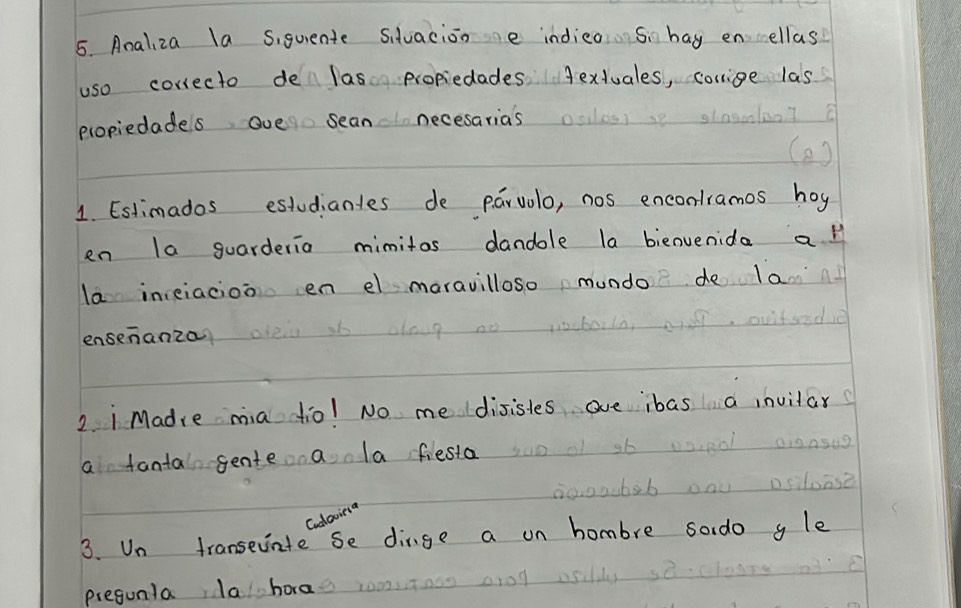 5. Analiza la siguiente situación e indica si hay en ellas
uso correcto de las propiedades textuales, corrige las
propiedades que sean necesarias
1. Estimados estudiantes de párvulo, nos encontramos hoy
en la guardería mimitos dandole la bienvenida a
la iniciación en el maravilloso mundo de la
enseñanza
2. ¡Madre mia tio! No me disistes que ibas a invitar
a tanta gente a la fiesta
Cualquiera
3. Un transeúnte se dirige a un hombre sordo y le
pregunta la hora